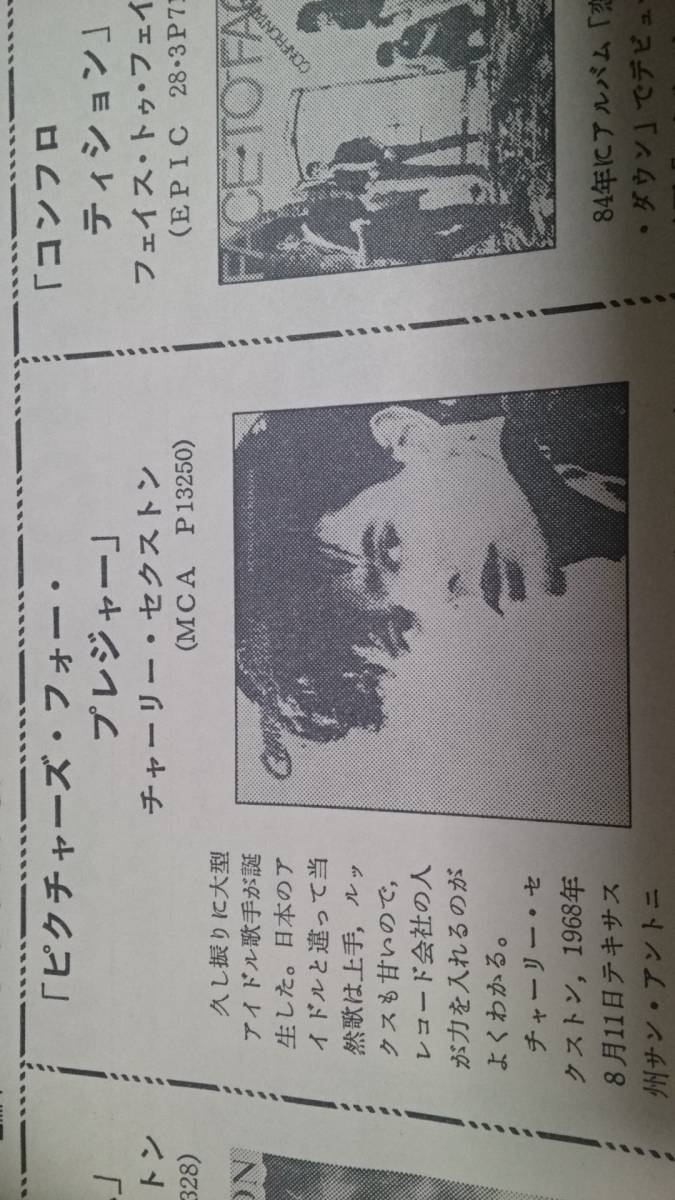 「ピクチャーズ・フォー・
プレジャー」
チャーリー・セクストン
(MCA P13250)
久し振りに大型
アイドル歌手が誕
生した。日本のア
イドルと違って当
然歌は上手，ルッ
クスも甘いので，
レコード会社の人
が力を入れるのが
よくわかる。
チャーリー・セ
クストン，1968年
8月11日テキサス
州サン・アントニ
「コンフロ
ティション」
フェイス・トゥ・フェイ
(EPIC 28・3P71
FACE TO FAC
CONFRONTA
84年にアルバム「恋
・ダウン」でデビュ
」
トン
328)
ON